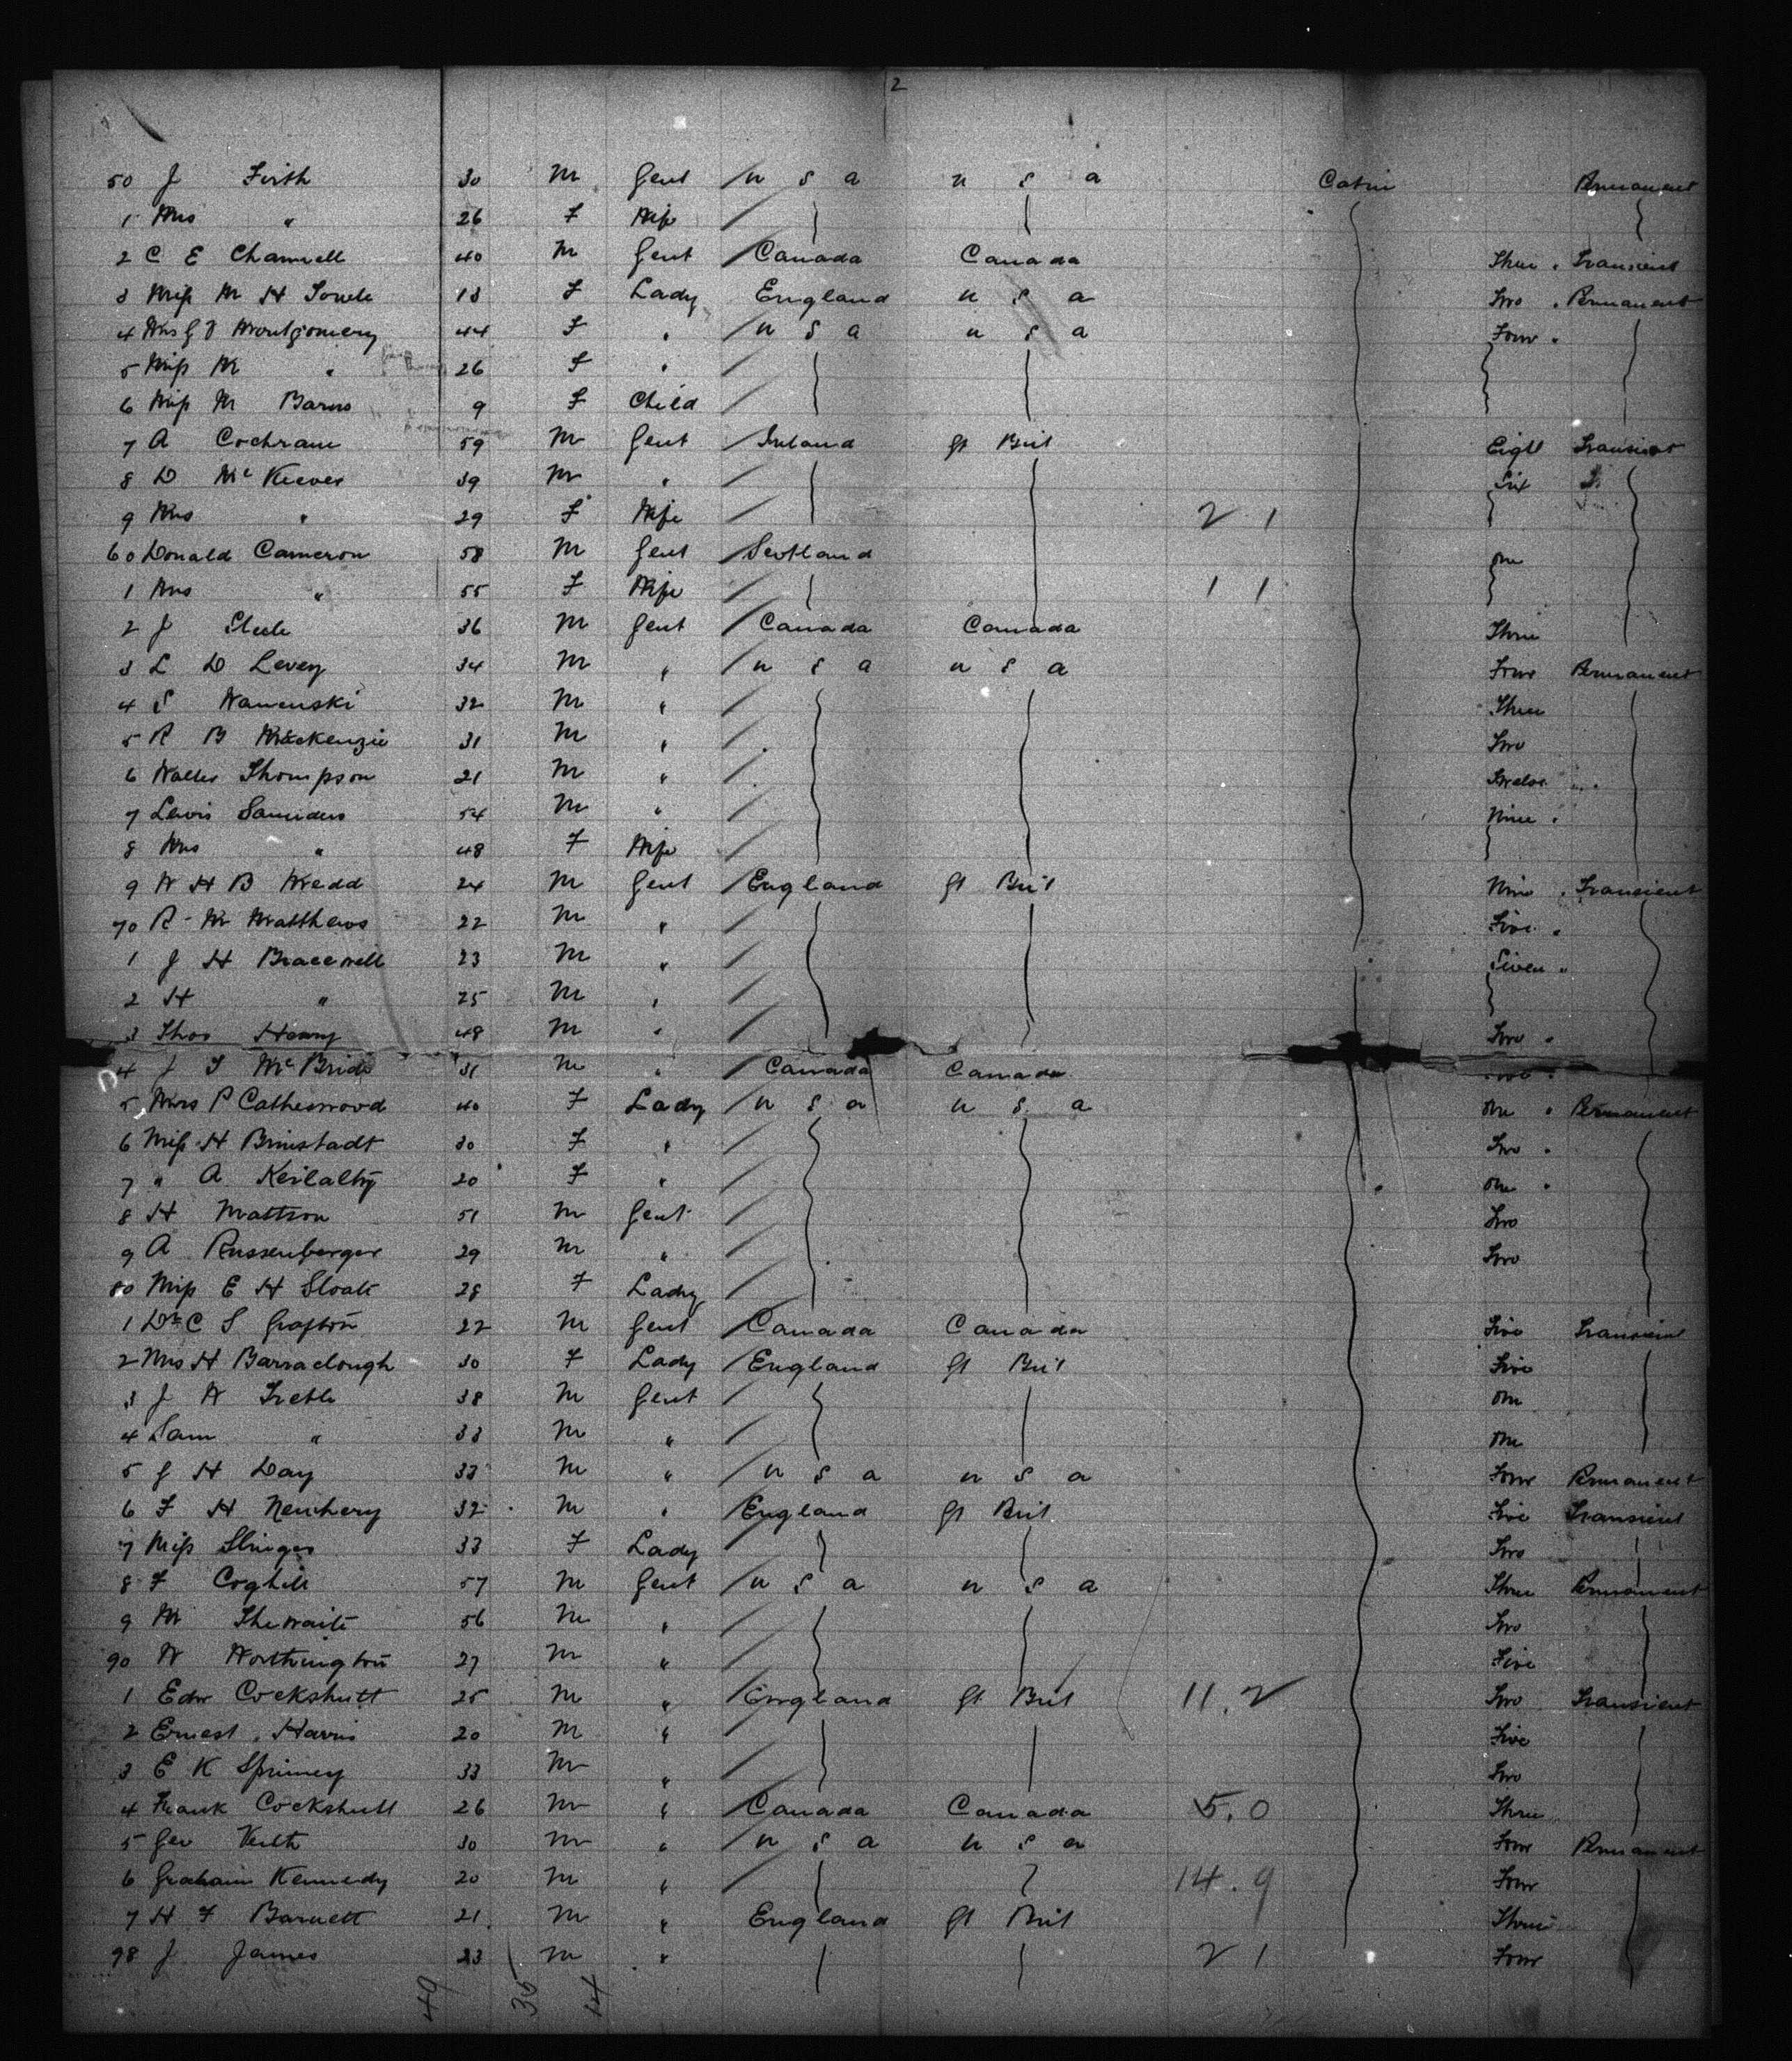 2
50 J Firth 30 M Gent U S A U S A Cabin Permanent
1 Mrs " 26 F Wife
2 C E Channell 40 M Gent Canada Canada Three " Transient
3 Miss M H 18 F Lady England U S A Two " Permanent
4 Mrs G Montgomery 44 F " U S A U S A Four "
5 Miss M " 26 F "
6 Miss M Barns 9 F Child
7 A Cochrane 59 M Gent Ireland Gt Brit Eight Transient
8 D McKeever 39 M " Six
9 Mrs " 29 F Wife 2 1
60 Donald Cameron 58 M Gent Scotland One
1 Mrs " 55 F Wife 1 1
2 J Steele 36 M Gent Canada Canada Three
3 L D Levey 34 M " U S A U S A Four Permanent
4 S 32 M " Three
5 R B Mackenzie 31 M " Two
6 Walter Thompson 21 M " Twelve
7 Lewis Saunders 54 M " Nine "
8 Mrs " 48 F Wife
9 W H B Wedd 24 M Gent England Gt Brit Nine " Transient
70 R M Matthews 22 M " Five "
1 J H Bracewell 23 M " Seven "
2 H " 25 M "
3 Thos Henry 48 M " Two "
4 J McBride 31 M " Canada Canada
5 Mrs P Catherwood 40 F Lady U S A U S A One " Permanent
6 Miss H Brinstadt 30 F " Two "
7 " A 20 F " One "
8 H Mattson 51 M Gent Two
9 A Russenberger 29 M " Two
80 Miss E H Sloate 28 F Lady
1 Dr C S Grafton 22 M Gent Canada Canada Five Transient
2 Mrs H Barraclough 30 F Lady England Gt Brit Five
3 J W 38 M Gent One
4 Sam " 33 M " One
5 J H Day 33 M " U S A U S A Four Permanent
6 F H Newbery 32 M " England Gt Brit Five Transient
7 Miss Slinger 33 F Lady Two
8 F Coghill 57 M Gent U S A U S A Three Permanent
9 M 56 M " Two
90 W Worthington 27 M " Five
1 Edw Cockshutt 25 M " England Gt Brit 11.2 Two Transient
2 Ernest Harris 20 M " Five
3 E K 33 M " Two
4 Frank Cockshutt 26 M " Canada Canada 5.0 Three
5 Geo 30 M " U S A U S A Four Permanent
6 Graham Kennedy 20 M " 14.9 Four
7 H F Barnett 21 M " England Gt Brit Three
98 J James 23 M " 2 1 Four
49 35 14